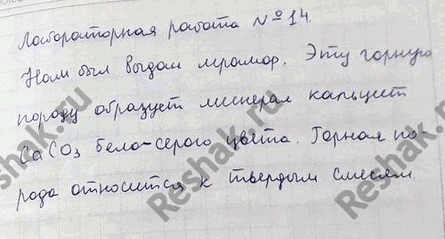 Лабораторная работа №14.
Нам был выдан мрамор. Эту горную
породу образует минерал кальцит
CaCO3 бело-серого цвета. Горная по-
рода относится к твердым смесям.
Reshak.ru
Reshak.ru
Reshak.ru